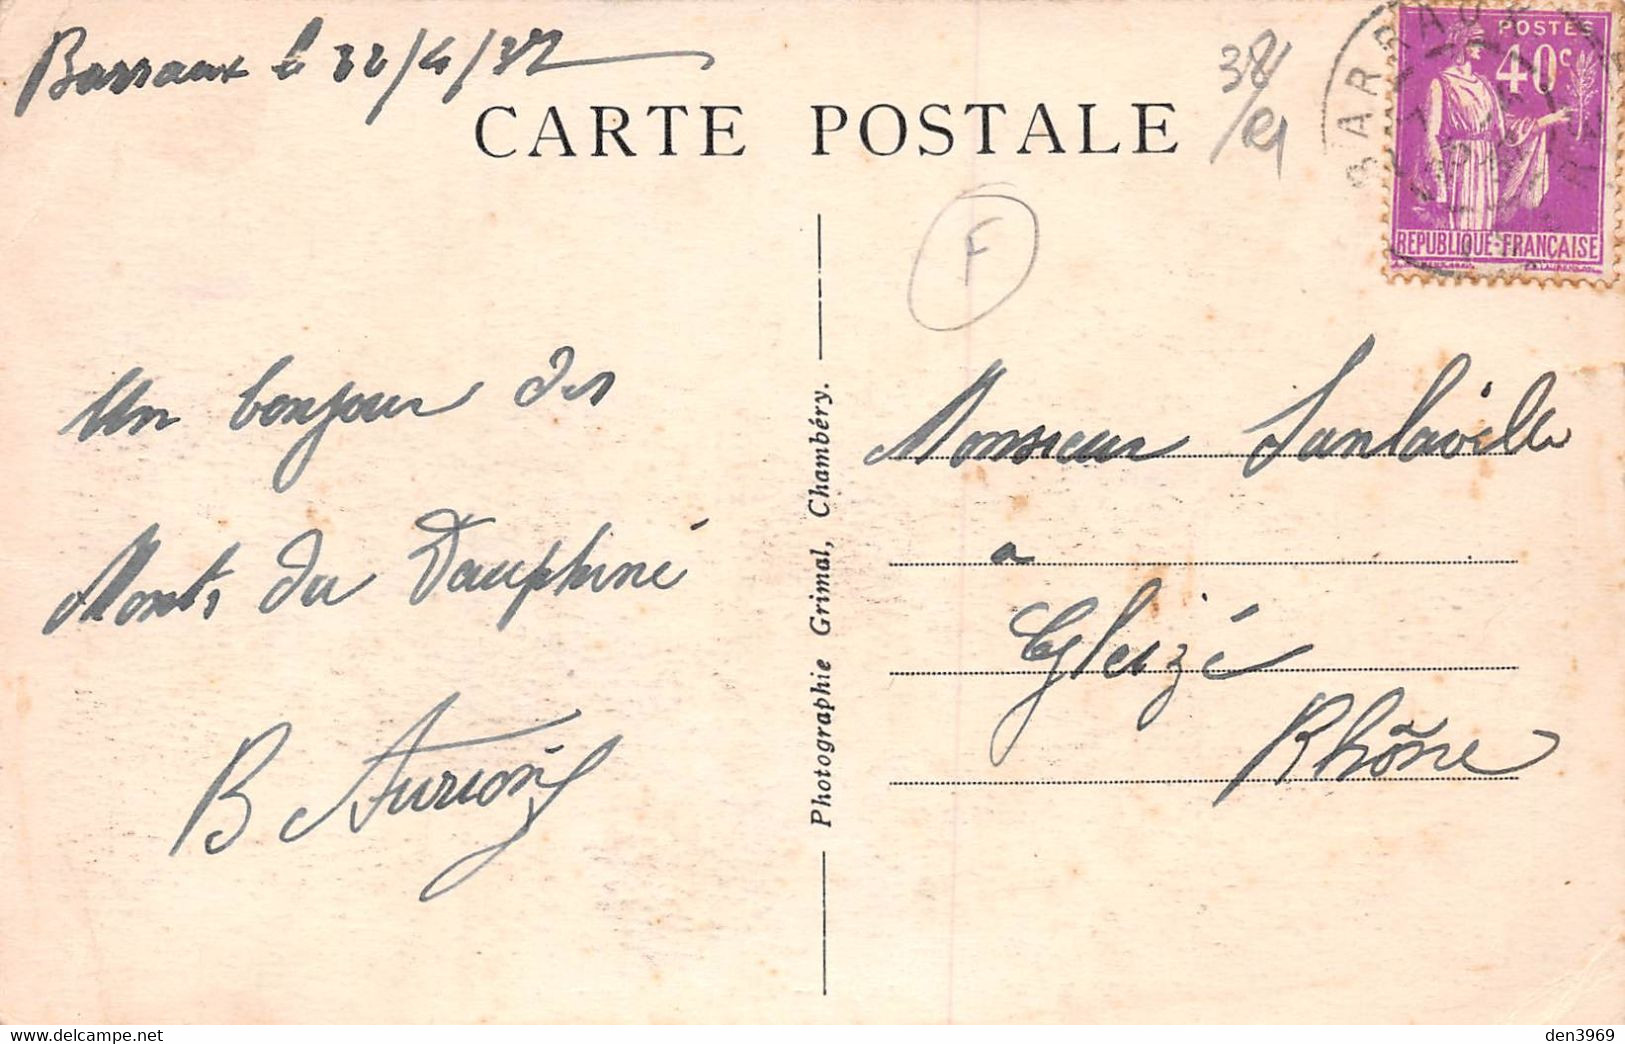 Barraux le 22/4/37
CARTE POSTALE
38/
POSTES
40c
REPUBLIQUE-FRANÇAISE
BARRAUX
F
Un bonjour des
Monts du Dauphiné
B Aurion
Photographie Grimal, Chambéry.
Monsieur Sanlaville
a
Gleizé
Rhône
www.delcampe.net
den3969